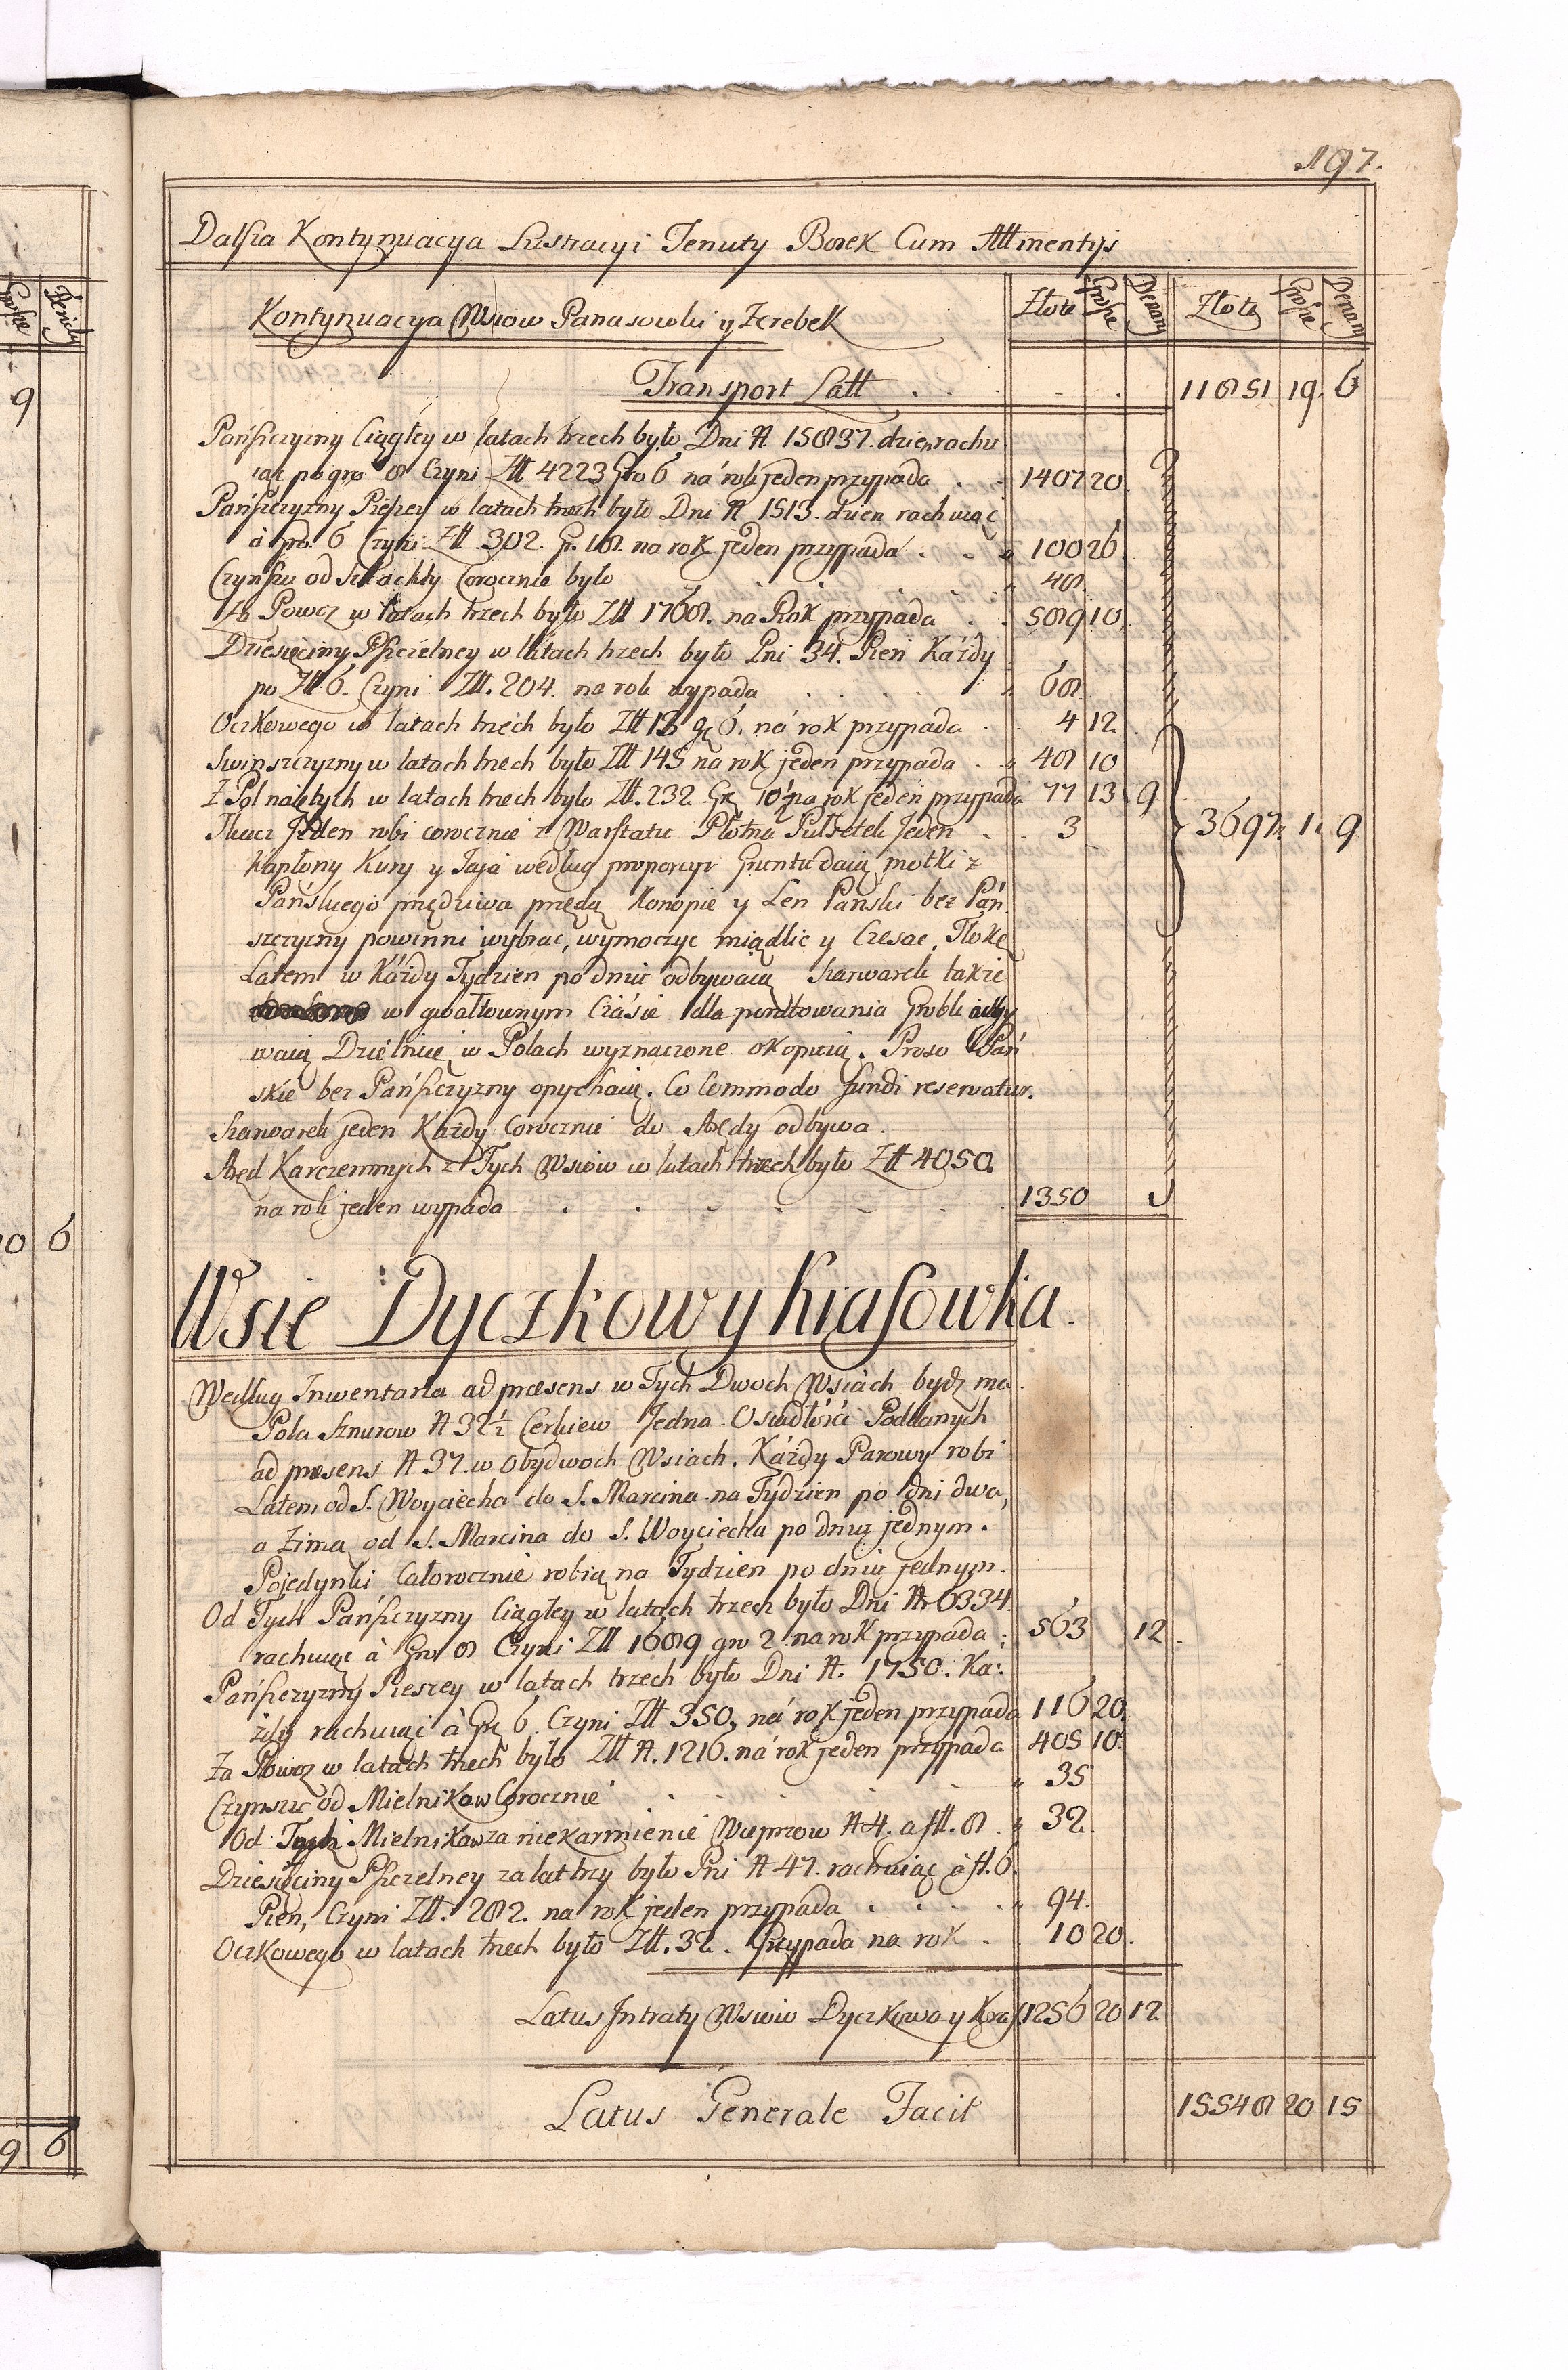 197.
Dalsza Kontynuacya Lustracyi Tenuty Borek Cum Attinentijs
Kontynuacya Wsiow Panasowki y Zerebek
Złote Grosze Denary Złote Grosze Denary
Transport Latt . . 11851 19. 6
Pańszczyzny Ciągłey w latach trzech było Dni N 15837. dzien rachu
iąc po gro 8 Czyni Złł 4223 Gro 6 na rok jeden przypada . . 1407 20.
Pańszczyzny Pieszey w latach trzech było Dni N 1513. dzien rachuiąc
à Gro. 6 Czyni Złł 302. Gr. 18. na rok jeden przypada . . 100 26
Czynszu od Szlachty Corocznie było 48.
Za Powoz w latach trzech było Złł 1768. na Rok przypada . . 589 10.
Dziesięciny Pszczelney w latach trzech było Pni 34. Pień Każdy
po Złł 6. Czyni Złł. 204. na rok wypada 68.
Oczkowego w latach trzech było Złł 13 gr 6. na rok przypada . 4 12
Swinszczyzny w latach trzech było Złł 145 na rok jeden przypada . 48 10
Z Pol naiętych w latach trzech było Złł. 232. Gr 10½ na rok jeden przypada 77 13 9
Tkacz Jeden robi corocznie z Warsztatu Płotna Pułsetek Jeden . 3 3697. 1. 9
Kapłony Kury y Jaja według proporcyi Gruntu daią, motki z
Pańskiego przędziwa przędą Konopie y Len Pański bez Pań
szczyzny powinni wybrac, wymoczyc miądlic y Czesac, Tłokę
Latem w Każdy Tydzien po dniu odbywaią Szarwark także
w gwałtownym Czásie dla poratowania Grobli odby
waią Dzielnicę w Polach wyznaczone okopuią. Proso Pań
skie bez Pańszczyzny opychaią. Co Commodo fundi reservatur.
Szarwark jeden Każdy Corocznie do Arędy odbywa.
Aręd Karczemnych z Tych Wsiow w latach trzech było Złł 4050.
na rok jeden wypada 1350
Wsie Dyczkow y Krasowka.
Według Inwentarza ad præsens w Tych Dwoch Wsiach bydz ma
Pola Sznurow N 32½ Cerkiew Jedna Osiadłości Poddanych
ad præsens N 37. w obydwoch Wsiach. Każdy Parowy robi
Latem od S. Woyciecha do S. Marcina na Tydzien po dni dwa,
a Zimą od S. Marcina do S. Woyciecha po dniu jednym.
Pojedynki Całorocznie robią na Tydzien po dniu jednym.
Od Tych Pańszczyzny Ciągłey w latach trzech było Dni N 6334.
rachuiąc à Gro 8 Czyni Złł 1689 gro 2 na rok przypada : 563 12.
Pańszczyzny Pieszey w latach trzech było Dni N. 1750. Ka:
żdy rachuiąc à Gr 6. Czyni Złł 350, na rok jeden przypada 116 20.
Za Powoz w latach trzech było Złł N. 1216. na rok jeden przypada 405 10.
Czynszu od Mielnikow Corocznie 35
Od Tych Mielnikow za niekarmienie Wieprzow N 4. a fłł. 8 . 32.
Dziesięciny Pszczelney za lat trzy było Pni N 47. rachuiąc à fł. 6.
Pień, Czyni Złł. 282. na rok jeden przypada . . . 94.
Oczkowego w latach trzech było Złł. 32. Przypada na rok . 10 20.
Latus Intraty Wsiow Dyczkowa y Kras. 1256 20 12
Latus Generale Facit 15548 20 15